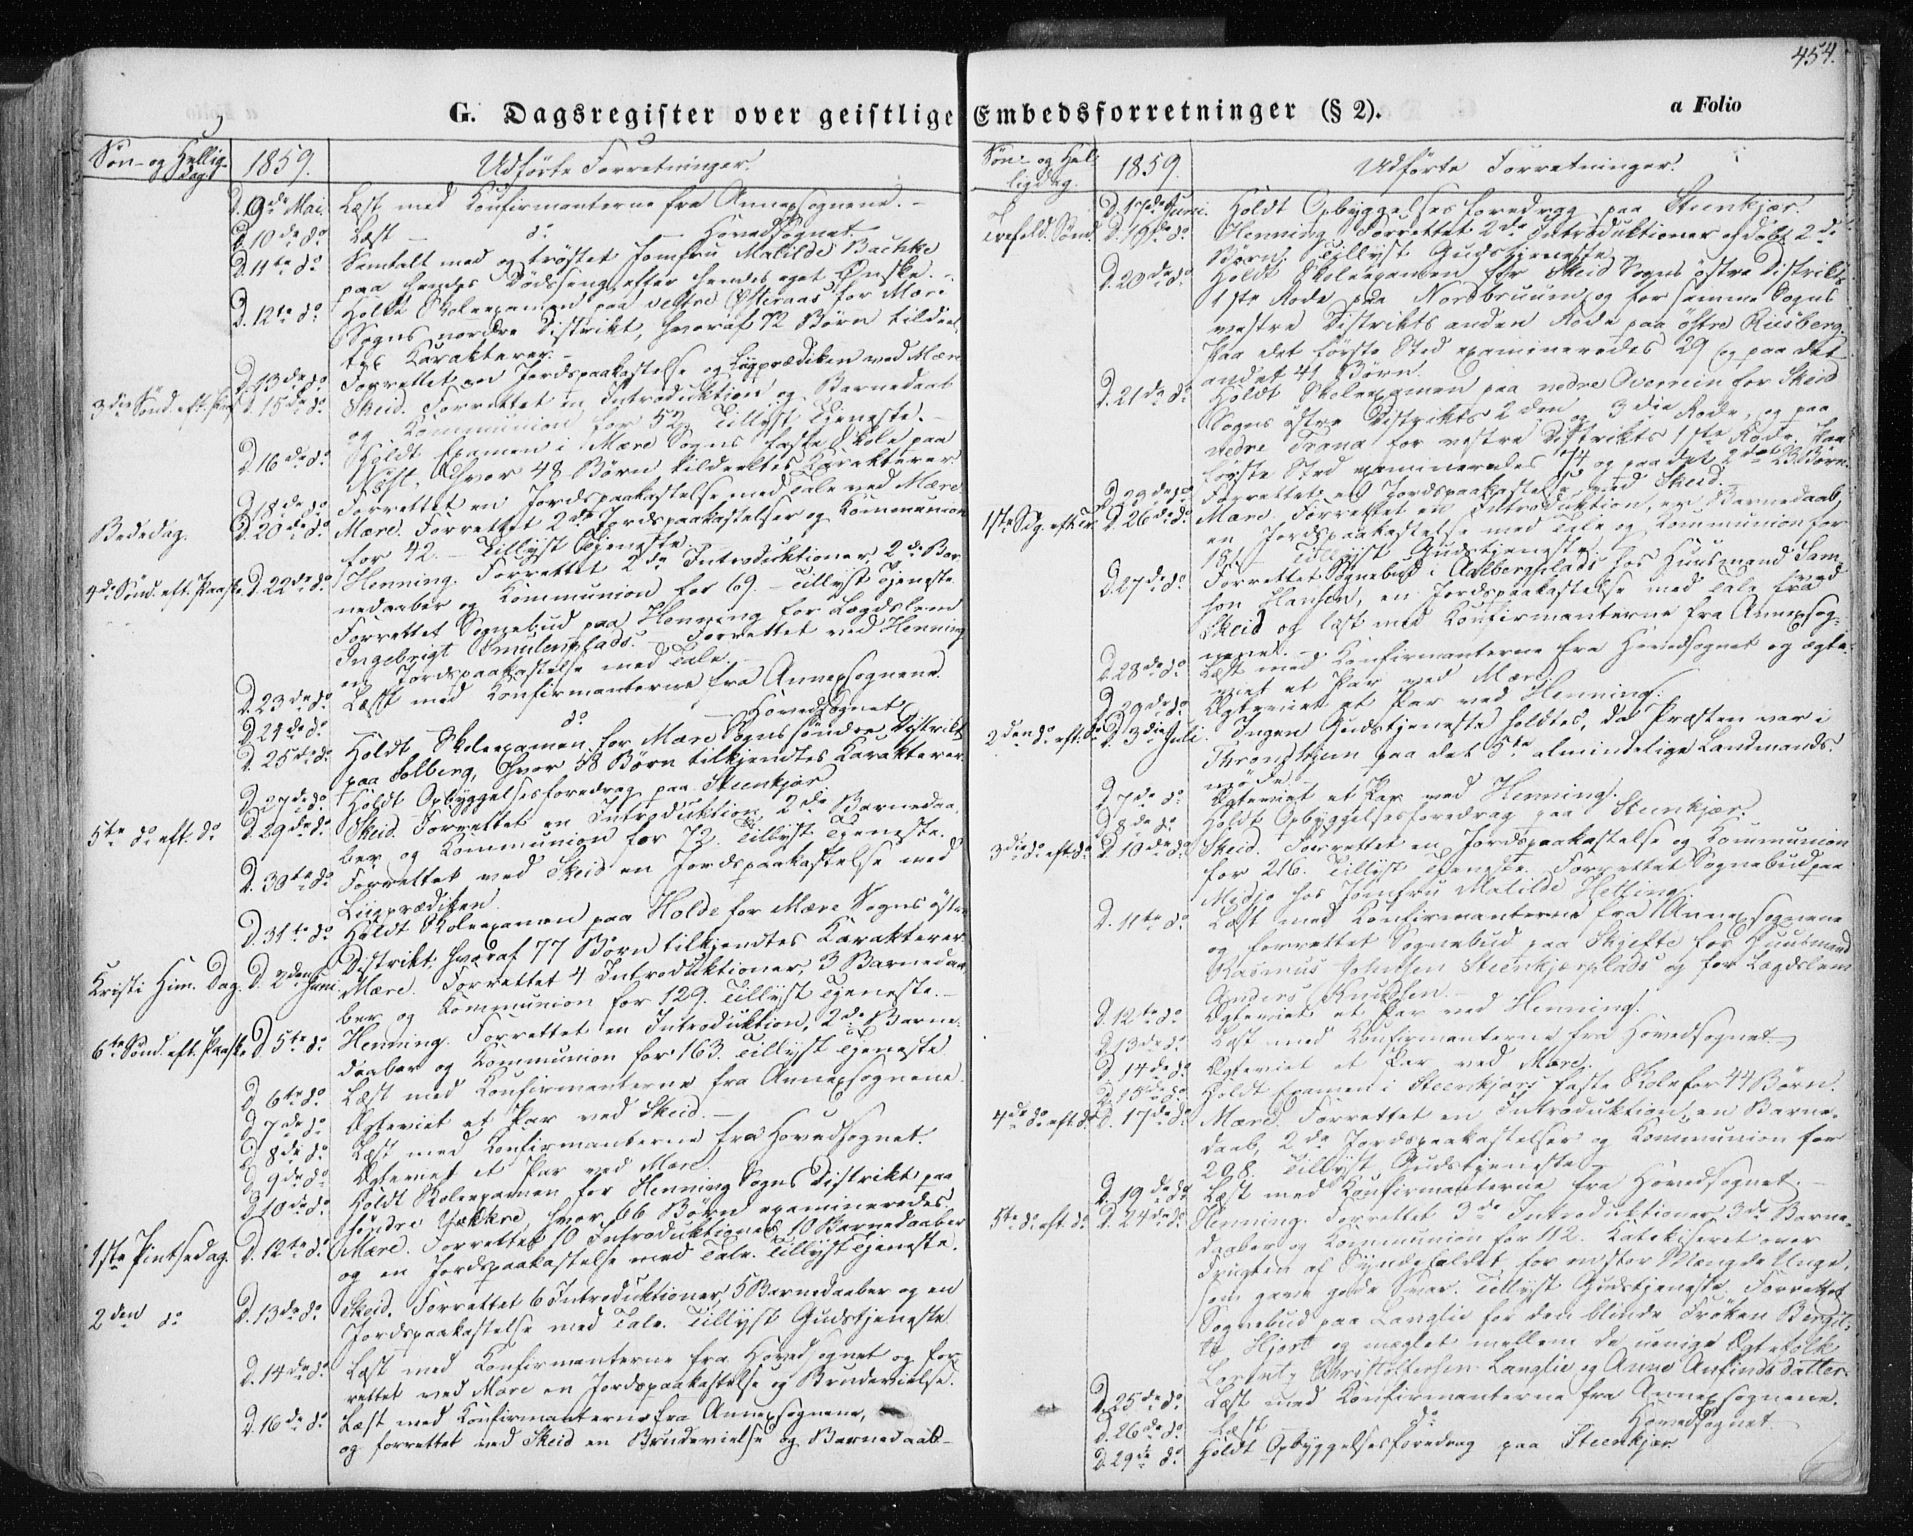 454.
G. Dagsregister over geistlige Embedsforretninger (§ 2).
a Folio
Søn- og Hellig-
dag.
1859.
Udførte Forretninger.
D. 9de Mai. Læst med Konfirmanterne fra Annexsognene. -
D. 10de do Læst - do - Hovedsognet -
D. 11te do Samtalt med og trøstet Jomfru Matilde Bachke
paa hendes Dødsseng efter hendes eget Ønske. -
D. 12te do Holdt Skoleexamen paa vestre for Mære
Sogns nordre Distrikt, hvoraf 72 Børn tildeel-
tes Karakterer. -
D. 13de do Forrettet en Jordspaakastelse og Liigprædiken ved Mære
3die Sønd. eft. D. 15de do Skeid. Forrettet en Introduktion og Barnedaab
og Kommunion for 52. Tillyst Tjeneste. -
D. 16de do Holdt Examen i Mære Sogns faste Skole paa
hvor 48 Børn tildeeltes Karakterer.
D. 18de do Forrettet en Jordspaakastelse med Tale ved Mære.
Bededag. D. 20de do Mære. Forrettet 2de Jordspaakastelser og Kommunion
for 42. - Tillyst Tjeneste.
4de Sønd. eft. Paaske D. 22de do Henning. Forrettet 2de Introduktioner 2de Bar-
nedaaber og Kommunion for 69. - Tillyst Tjeneste
Forrettet Sognebud paa Henning for Lægdslem
Ingebrigt Smulenplads. Forrettet ved Henning
en Jordspaakastelse med Tale. -
D. 23de do Læst med Konfirmanterne fra Annexsognene.
D. 24de do - do - Hovedsognet
D. 25de do Holdt Skoleexamen for Mære Sogns søndre Distrikt
paa Solberg, hvor 58 Børn tilkjendtes Karakterer.
D. 27de do Holdt Opbyggelsesforedrag paa Steenkjær
5te do eft. do D. 29de do Skeid. Forrettet en Introduktion 2de Barnedaa-
ber og Kommunion for 72. Tillyst Tjeneste.
D. 30te do Forrettet ved Skeid en Jordspaakastelse med
Liigprædiken.
D. 31te do Holdt Skoleexamen paa Holde for Mære Sogns østre
Distrikt, hvoraf 77 Børn tilkjendtes Karakterer.
Kristi Him. Dag. D. 2den Juni. Mære. Forrettet 4 Introduktioner, 3 Barnedaa-
ber og Kommunion for 129. Tillyst Tjeneste. -
6te Sønd. eft. Paaske D. 5te do Henning. Forrettet en Introduktion, 2de Barne-
daaber og Kommunion for 163. Tillyst Tjeneste
D. 6te do Læst med Konfirmanterne fra Annexsognene
D. 7de do Ægteviet et Par ved Skeid. -
D. 8de do Læst med Konfirmanterne fra Hovedsognet.
D. 9de do Ægteviet et Par ved Mære.
D. 10de do Holdt Skoleexamen for Henning Sogns Distrikt paa
søndre hvor 66 Børn examineredes.
1ste Pintsedag. D. 12te do Mære. Forrettet 10 Introduktioner, 10 Barnedaaber
og en Jordspaakastelse med Tale. Tillyst Tjeneste.
2den do D. 13de do Skeid. Forrettet 6 Introduktioner, 5 Barnedaaber og en
Jordspaakastelse med Tale. Tillyst Gudstjeneste
D. 14de do Læst med Konfirmanterne fra Hovedsognet og for-
rettet ved Mære en Jordspaakastelse og Brudevielse.
D. 16de do Læst med Konfirmanterne fra Annexsognene,
og forrettet ved Skeid en Brudevielse og Barnedaab -
Søn- og Hel-
ligdag.
1859.
Udførte Forretninger.
D. 17de Juni. Holdt Opbyggelsesforedrag paa Steenkjær.
Trefold. Sønd. D. 19de do Henning. Forrettet 2de Introduktioner og døbt 2de
Børn. Tillyst Gudstjeneste.
D. 20de do Holdt Skoleexamen for Skeid Sogns østre Distrikts
1ste Rode paa og for samme Sogns
vestre Distrikts anden Rode paa østre Riisberg.
Paa det første Sted examineredes 29 og paa det
andet 41 Børn.
D. 21de do Holdt Skoleexamen paa nedre Overrein for Skeid
Sogns østre Distrikts 2den og 3die Rode, og paa
nedre Trana for vestre Distrikts 1ste Rode. Paa
første Sted examineredes 74 og paa det 2det 23 Børn.
D. 23de do Forrettet en Jordspaakastelse ved Skeid. -
1ste S. eft. Tr. D. 26de do Mære. Forrettet en Introduktion, en Barnedaab,
en Jordspaakastelse med Tale og Kommunion for
181. Tillyst Gudstjeneste.
D. 27de do Forrettet Sognebud i hos Huusmand Sam-
son Hansen, en Jordspaakastelse med Tale ved
Skeid og læst med Konfirmanterne fra Annexsog-
nene. -
D. 28de do Læst med Konfirmanterne fra Hovedsognet og ægte-
viet et Par ved Mære.
D. 29de do Ægteviet et Par ved Henning.
2den do eft. do D. 3die Juli. Ingen Gudstjeneste holdtes, da Præsten var i
Throndhjem paa det 5te almindelige Landmands-
møde.
D. 7de do Ægteviet et Par ved Henning.
D. 8de do Holdt Opbyggelsesforedrag paa Steenkjær.
3die do eft. do D. 10de do Skeid. Forrettet en Jordspaakastelse og Kommunion
for 216. Tillyst Tjeneste. Forrettet Sognebud paa
Midjo hos Jomfru Matilde Helling.
D. 11te do Læst med Konfirmanterne fra Annexsognene
og forrettet Sognebud paa Skjefte for Huusmand
Rasmus Johnsen Steenkjærplads og for Lægdslem
Anders Knudsen.
D. 12te do Ægteviet et Par ved Henning.
D. 13de do Læst med Konfirmanterne fra Hovedsognet
D. 14de do Ægteviet et Par ved Mære.
D. 15de do Holdt Examen i Steenkjærs faste Skole for 44 Børn.
4de do eft. do D. 17de do Mære. Forrettet en Introduktion, en Barne-
daab, 2de Jordspaakastelser og Kommunion for
208. Tillyst Gudstjeneste -
D. 19de do Læst med Konfirmanterne fra Hovedsognet. -
5te do eft. do D. 24de do Henning. Forrettet 3de Introduktioner 3de Barne-
daaber og Kommunion for 112. Katekiseret over
Frugten af Syndefaldet for en stor Mængde Unge,
som gave gode Svar. Tillyst Gudstjeneste. Forrettet
Sognebud paa Langlie for den blinde Frøken Bergit-
te Hjort og mæglet mellem de uenige Ægtefolk
Lorentz Christophersen Langlie og Anne Anfindsdatter.
D. 25de do Læst med Konfirmanterne fra Annexsognene.
D. 26de do Læst do Hovedsognet
D. 29de do Holdt Opbyggelsesforedrag paa Steenkjær